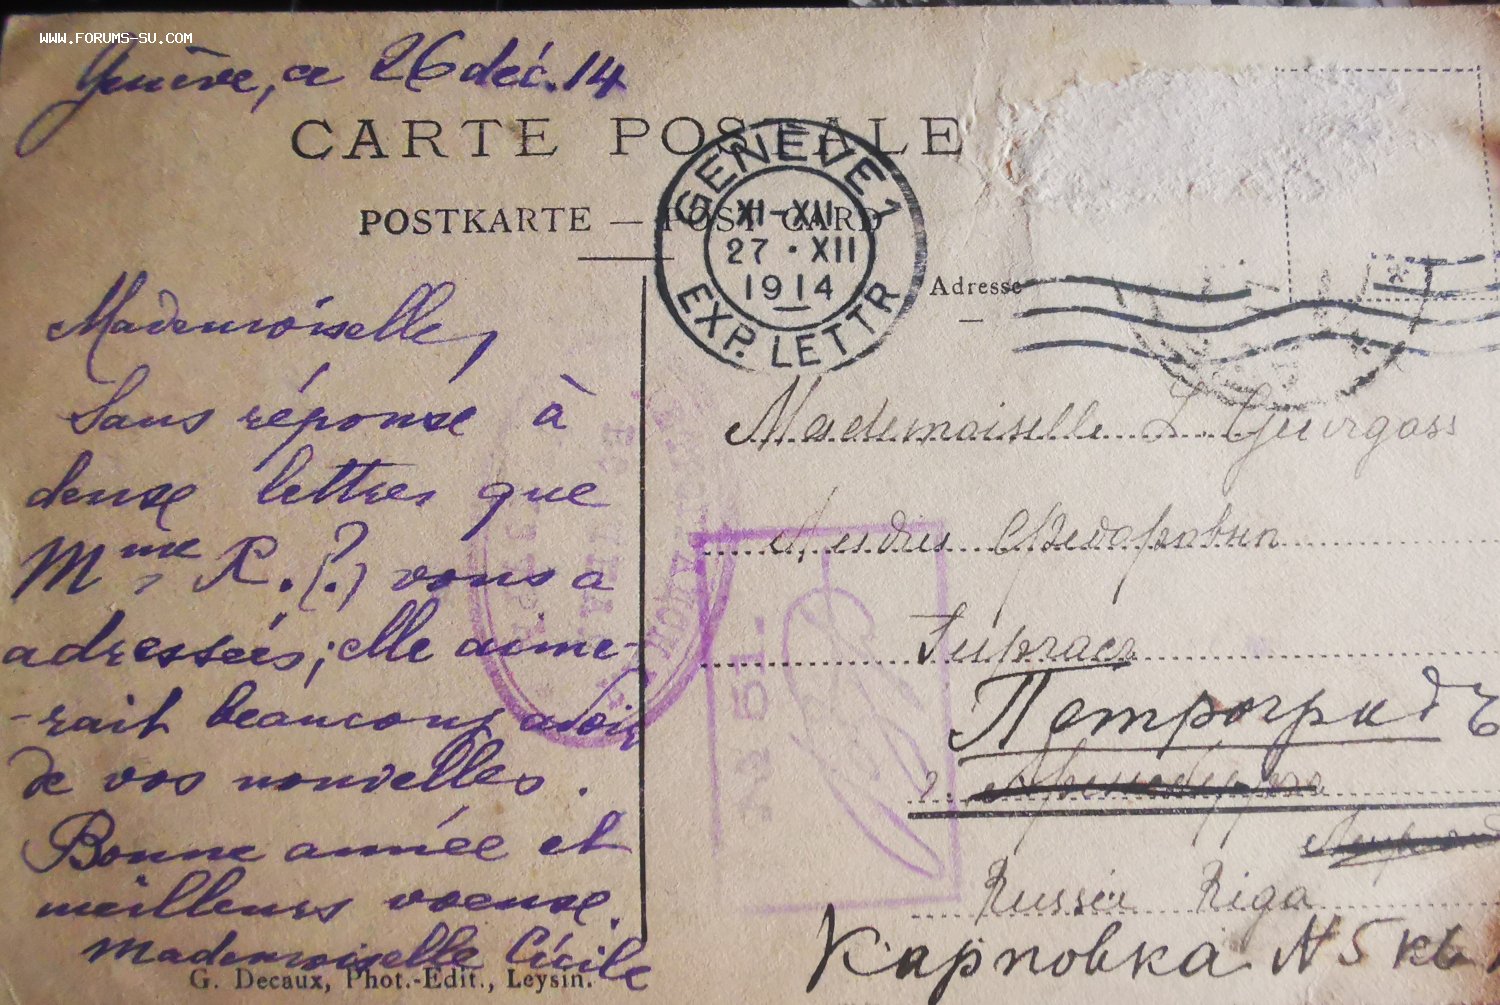 www.forums-su.com
Genève, ce 26 déc. 14
CARTE POSTALE
POSTKARTE — POST CARD
GENÈVE 1
XI-XII
27 · XII
1914
EXP. LETTR
Adresse
Mademoiselle,
Sans réponse à
deux lettres que
Mme, R. (?) vous a
adressées; elle aime-
-rait beaucoup avoir
de vos nouvelles.
Bonne année et
meilleurs voeux.
Mademoiselle Cécile
G. Decaux, Phot.-Edit., Leysin.
Mademoiselle L.
Петроградъ
Russie Riga
Карповка N 5 кв